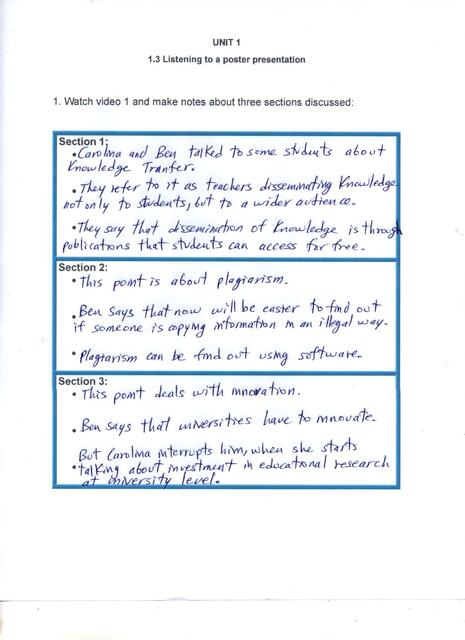 UNIT 1
1.3 Listening to a poster presentation
1. Watch video 1 and make notes about three sections discussed:
Section 1:
• Carolina and Ben talked to some students about
Knowledge Tranfer.
• They refer to it as teachers disseminating Knowledge
not only to students, but to a wider audience.
• They say that dissemination of Knowledge is through
publications that students can access for free.
Section 2:
• This point is about plagiarism.
• Ben says that now will be easier to find out
if someone is copying information in an illegal way.
• Plagiarism can be find out using software.
Section 3:
• This point deals with innovation.
• Ben says that universities have to innovate.
But Carolina interrupts him, when she starts
• talking about investment in educational research
at university level.